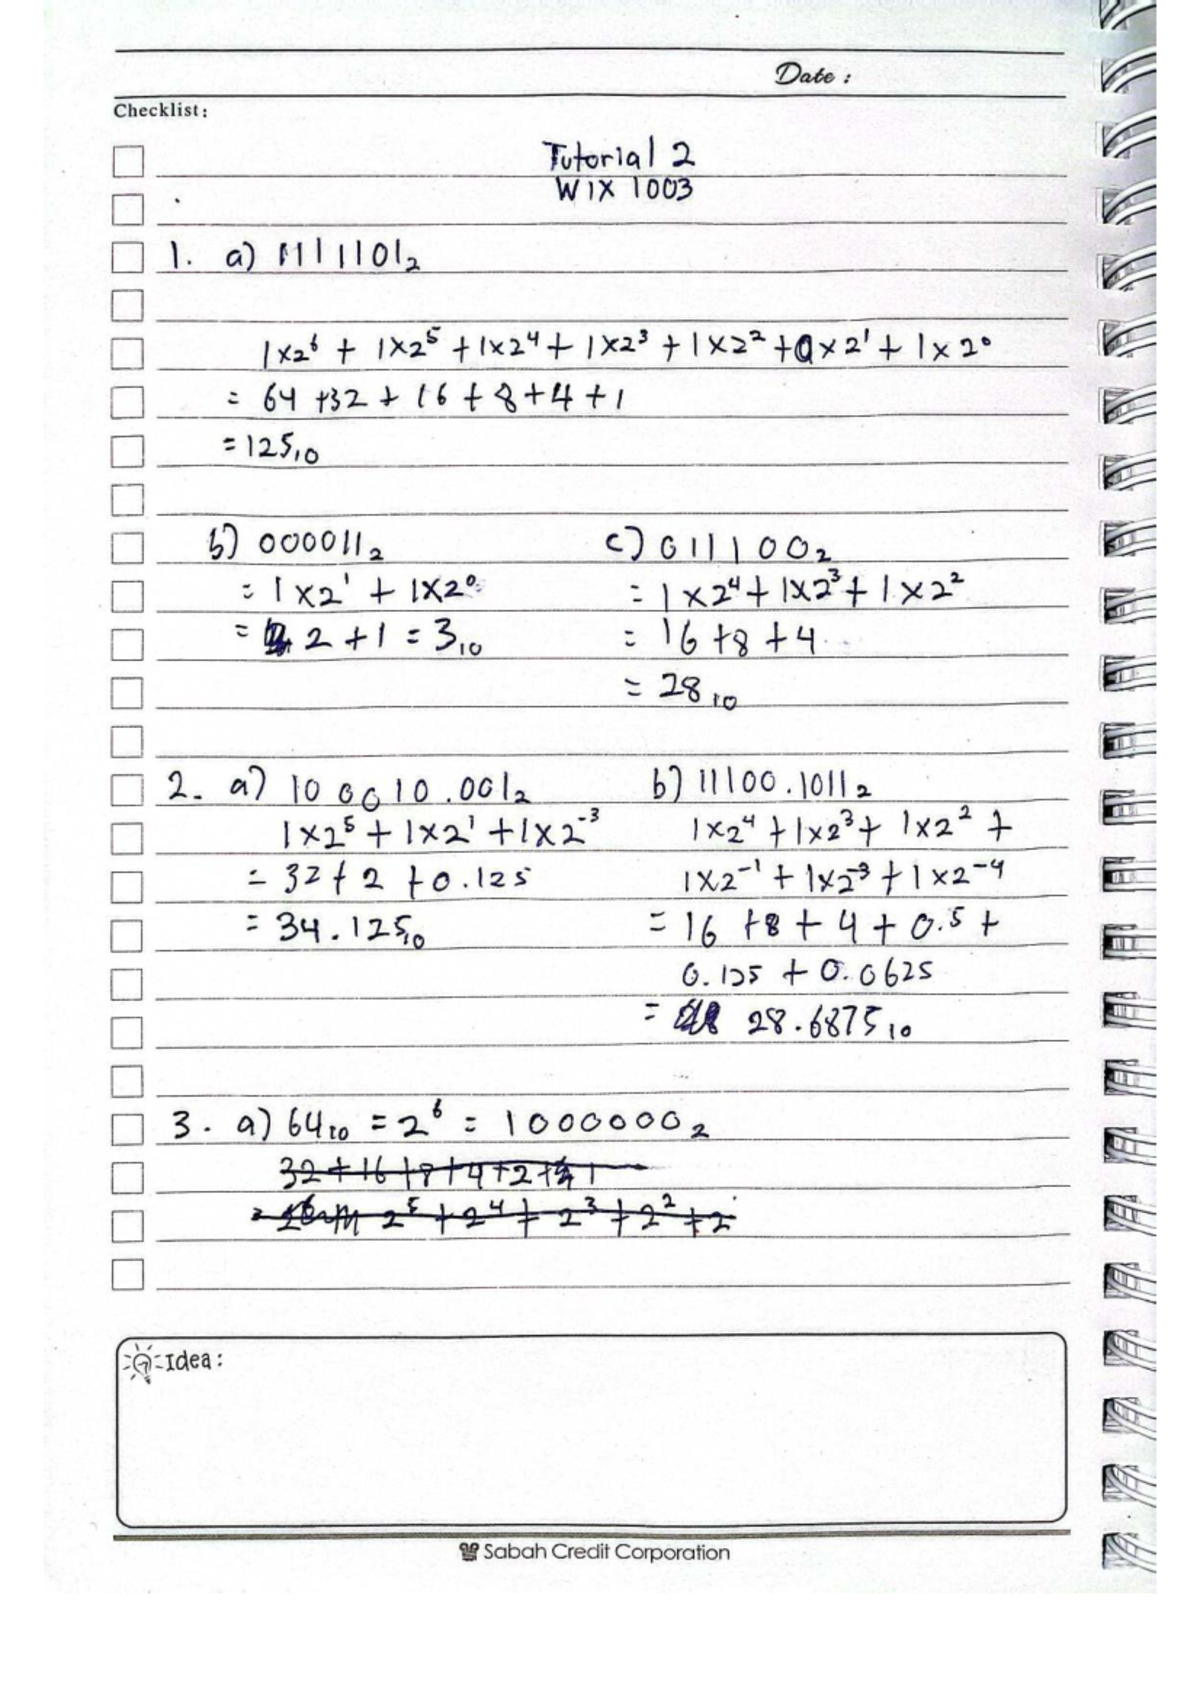 Date :
Checklist:
Tutorial 2
WIX 1003
1. a) 1111101₂
1x2⁶ + 1x2⁵ + 1x2⁴ + 1x2³ + 1x2² + 0x2¹ + 1x2⁰
= 64 + 32 + 16 + 8 + 4 + 1
= 125₁₀
b) 000011₂
= 1x2¹ + 1x2⁰
= 2 + 1 = 3₁₀
c) 0111 00₂
= 1x2⁴ + 1x2³ + 1x2²
= 16 + 8 + 4
= 28₁₀
2. a) 100010.001₂
1x2⁵ + 1x2¹ + 1x2⁻³
= 32 + 2 + 0.125
= 34.125₁₀
b) 11100.1011₂
1x2⁴ + 1x2³ + 1x2² +
1x2⁻¹ + 1x2⁻³ + 1x2⁻⁴
= 16 + 8 + 4 + 0.5 +
0.125 + 0.0625
= 28.6875₁₀
3. a) 64₁₀ = 2⁶ = 1000000₂
32 + 16 + 8 + 4 + 2 + 1
2⁵ + 2⁴ + 2³ + 2² + 2
Idea:
Sabah Credit Corporation